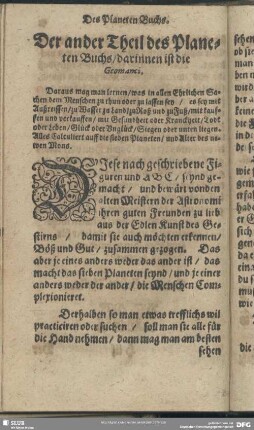 Des Planeten Buchs.
Der ander Theil des Plane-
ten Buchs / darinnen ist die
Geomanci.
Daraus mag man lernen / was in allen Ehrlichen Sa-
chen dem Menschen zu thun oder zu lassen sey / es sey mit
Außreysen / zu Wasser zu Land / zu Roß und zu Fuß / mit kauf-
fen und verkauffen / mit Gesundheit oder Kranckheit / Todt
oder Leben / Glück oder Unglück / Siegen oder unten liegen.
Alles Calculiert auff die sieben Planeten / und Alter des ne-
wen Mons.
DJese nach geschriebene Fi-
guren und A B C / seynd ge-
macht / und bewärt von den
alten Meistern der Astronomi
ihren guten Freunden zu lieb
aus der Edlen Kunst des Ge-
stiens / damit sie auch möchten erkennen /
Böß und Gut / zusammen gezogen. Das
aber je eines anders weder das ander ist / das
macht das sieben Planeten seynd / und je einer
anders weder der ander / die Menschen Com-
plexioniret.
Derhalben so man etwas trefflichs wil
practiciren oder suchen / soll man sie alle für
die Hand nehmen / dann mag man am besten
sehen
die
SLUB